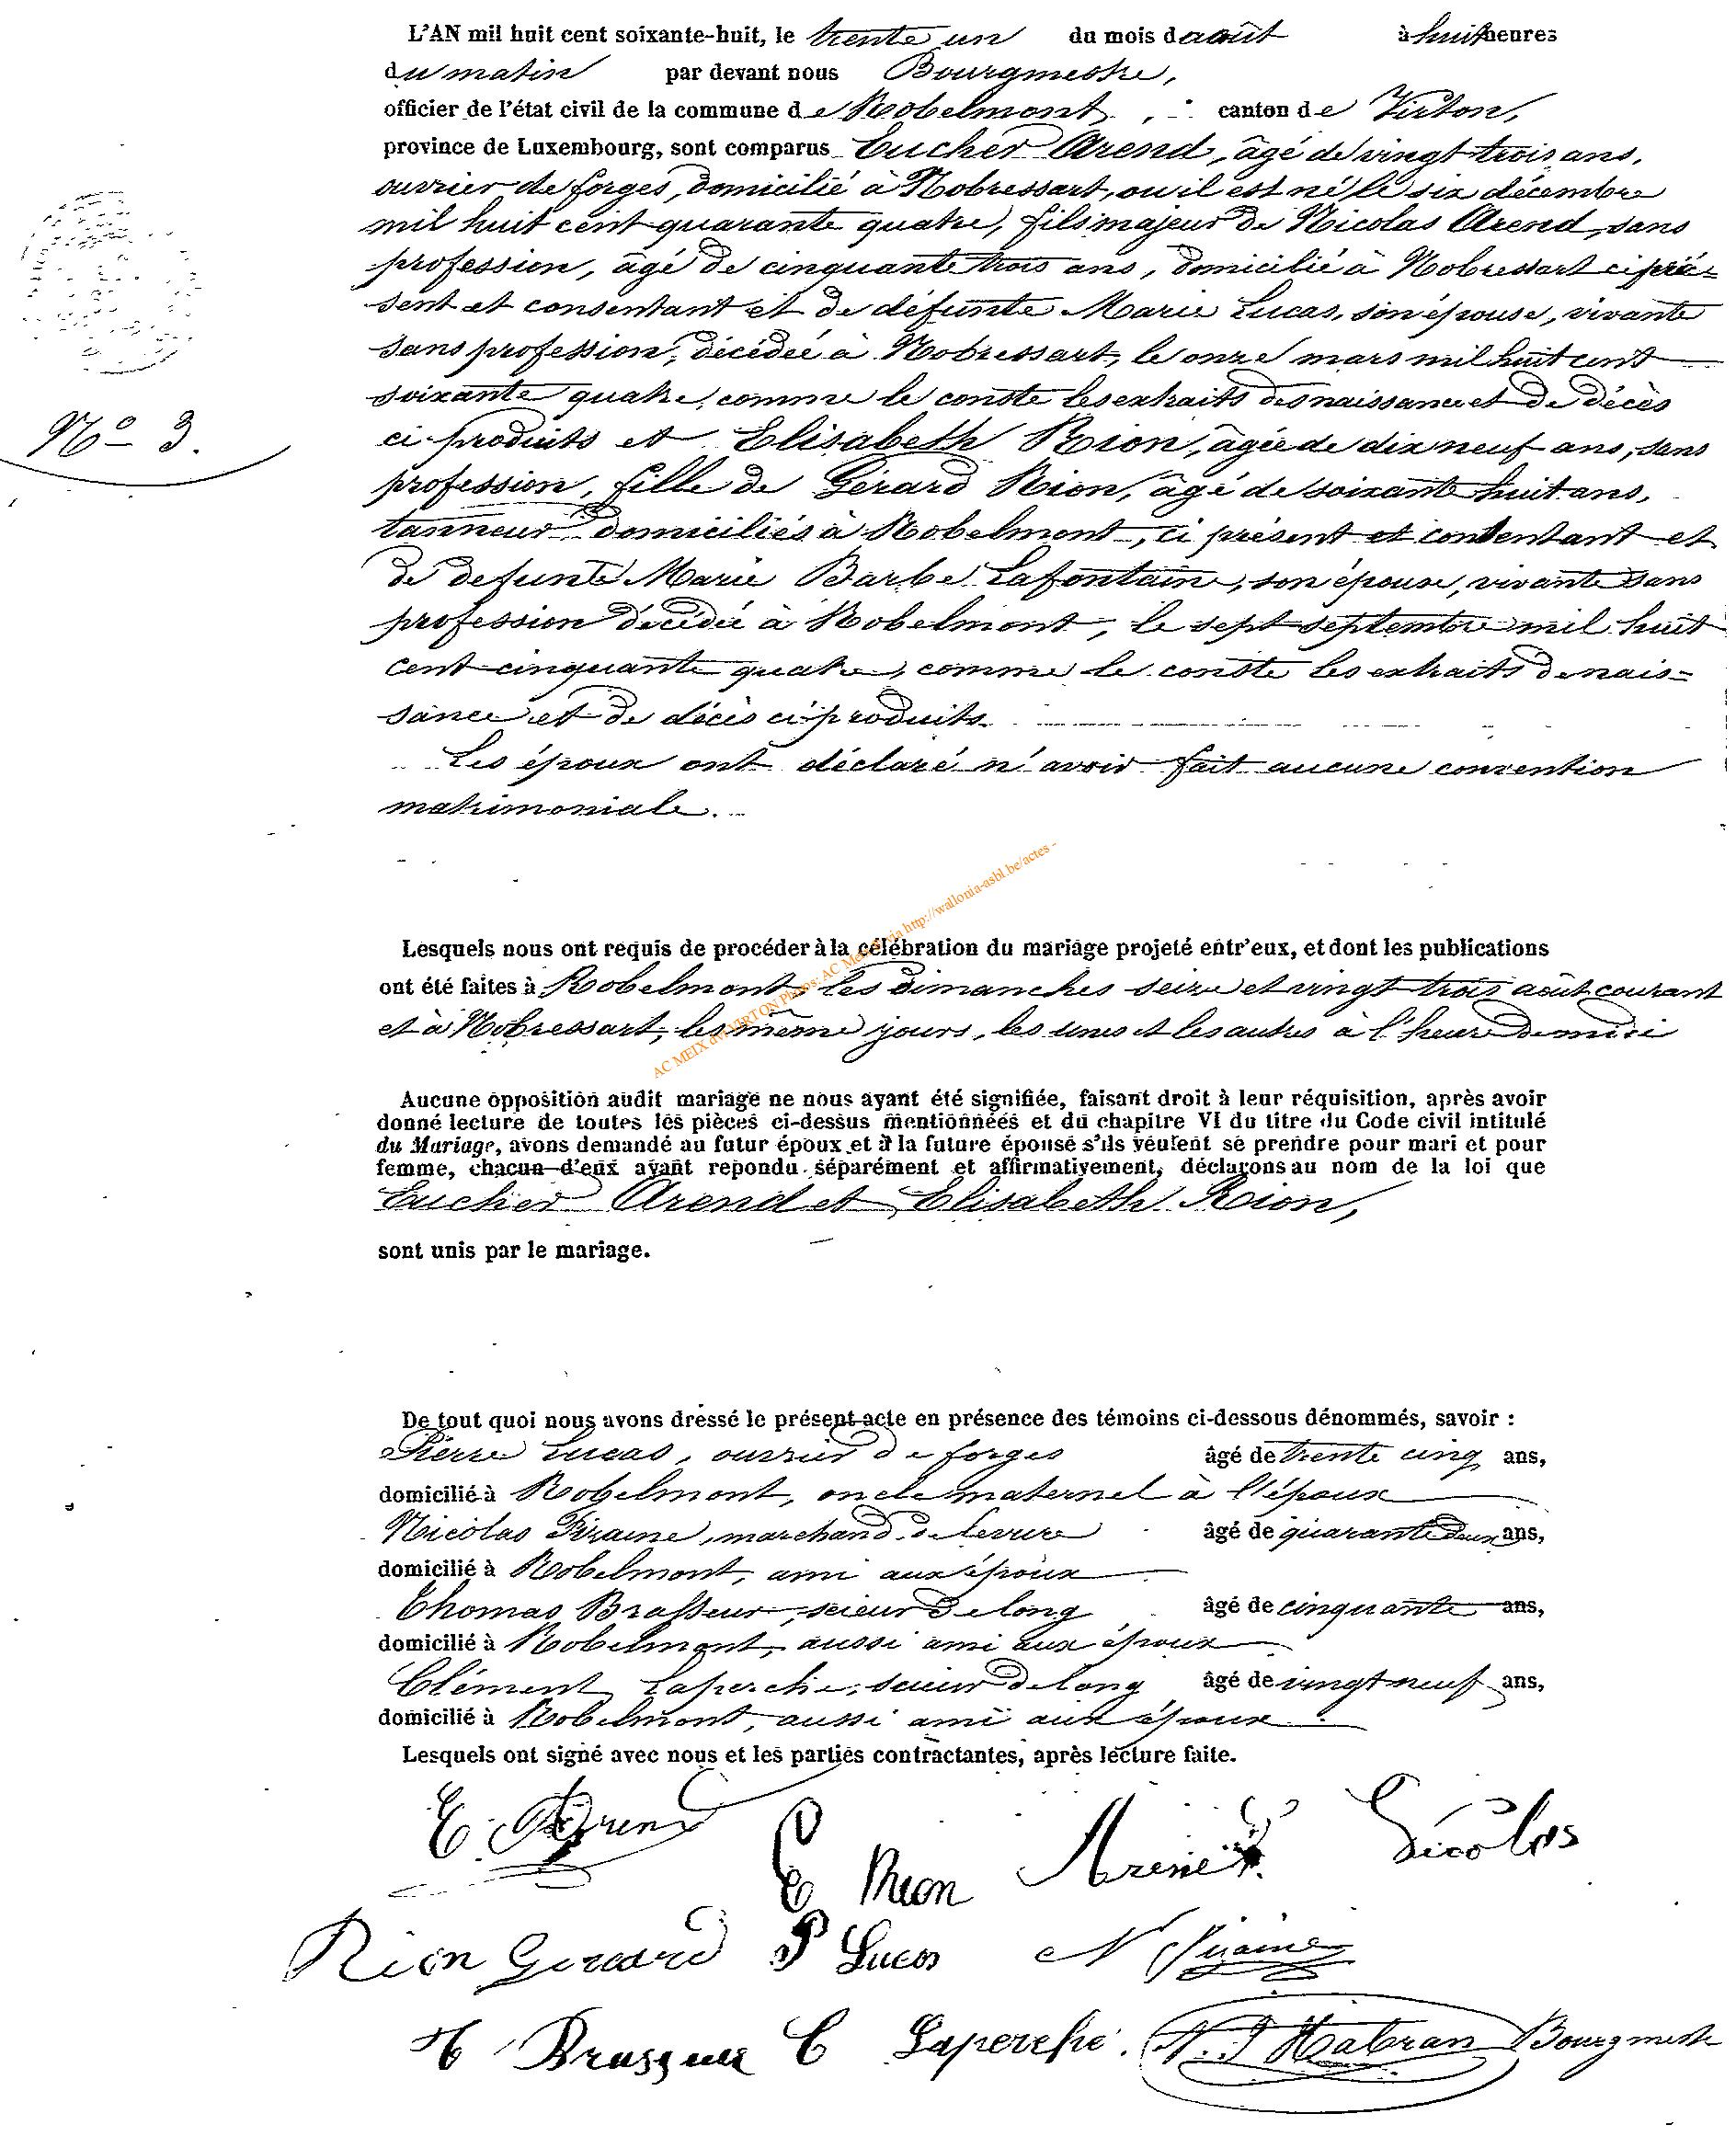 L'AN mil huit cent soixante-huit, le trente un du mois d'août à huit heures
du matin par devant nous Bourgmestre,
officier de l'état civil de la commune de Robelmont, canton de Virton,
province de Luxembourg, sont comparus Eucher Arend, âgé de vingt trois ans,
ouvrier de forges, domicilié à Nobressart, ou il est né le six décembre
mil huit cent quarante quatre, fils majeur de Nicolas Arend, sans
profession, âgé de cinquante trois ans, domicilié à Nobressart ci pré=
sent et consentant et de défunte Marie Lucas, son épouse, vivante
sans profession, décédée à Nobressart, le onze mars mil huit cent
soixante quatre, comme le conste les extraits de naissance et de décès
N° 3.
ci produits et Elisabeth Rion, âgée de dix neuf ans, sans
profession, fille de Gérard Rion, âgé de soixante huit ans,
tanneur domiciliés à Robelmont, ci présent et consentant et
de defunte Marie Barbe Lafontaine, son épouse, vivante sans
profession décédée à Robelmont, le sept septembre mil huit
cent cinquante quatre, comme le conste les extraits de nais=
sance et de décès ci produits.
Les époux ont déclaré n'avoir fait aucune convention
matrimoniale.
AC MEIX dvt VIRTON Photos: AC Meix via http://wallonia-asbl.be/actes -
Lesquels nous ont requis de procéder à la célébration du mariage projeté entr'eux, et dont les publications
ont été faites à Robelmont, les dimanches seize et vingt trois août courant
et à Nobressart, les même jours, les unes et les autres à l'heure de midi
Aucune opposition audit mariage ne nous ayant été signifiée, faisant droit à leur réquisition, après avoir
donné lecture de toutes les pièces ci-dessus mentionnées et du chapitre VI du titre du Code civil intitulé
du Mariage, avons demandé au futur époux et à la future épouse s'ils veulent se prendre pour mari et pour
femme, chacun d'eux ayant repondu séparément et affirmativement, déclarons au nom de la loi que
Eucher Arend et Elisabeth Rion,
sont unis par le mariage.
De tout quoi nous avons dressé le présent acte en présence des témoins ci-dessous dénommés, savoir :
Pierre Lucas, ouvrier de forges âgé de trente cinq ans,
domicilié à Robelmont, oncle maternel à l'époux
Nicolas Piraine, marchand de levure âgé de quarante deux ans,
domicilié à Robelmont, ami aux époux
Thomas Brasseur, scieur de long âgé de cinquante ans,
domicilié à Robelmont, aussi ami aux époux
Clément Laperche, scieur de long âgé de vingt neuf ans,
domicilié à Robelmont, aussi ami aux époux.
Lesquels ont signé avec nous et les parties contractantes, après lecture faite.
E. Arend E Rion Nicolas
Rion Gerard P Lucas N Piraine
C Laperche. N. J Habran Bourgmestre